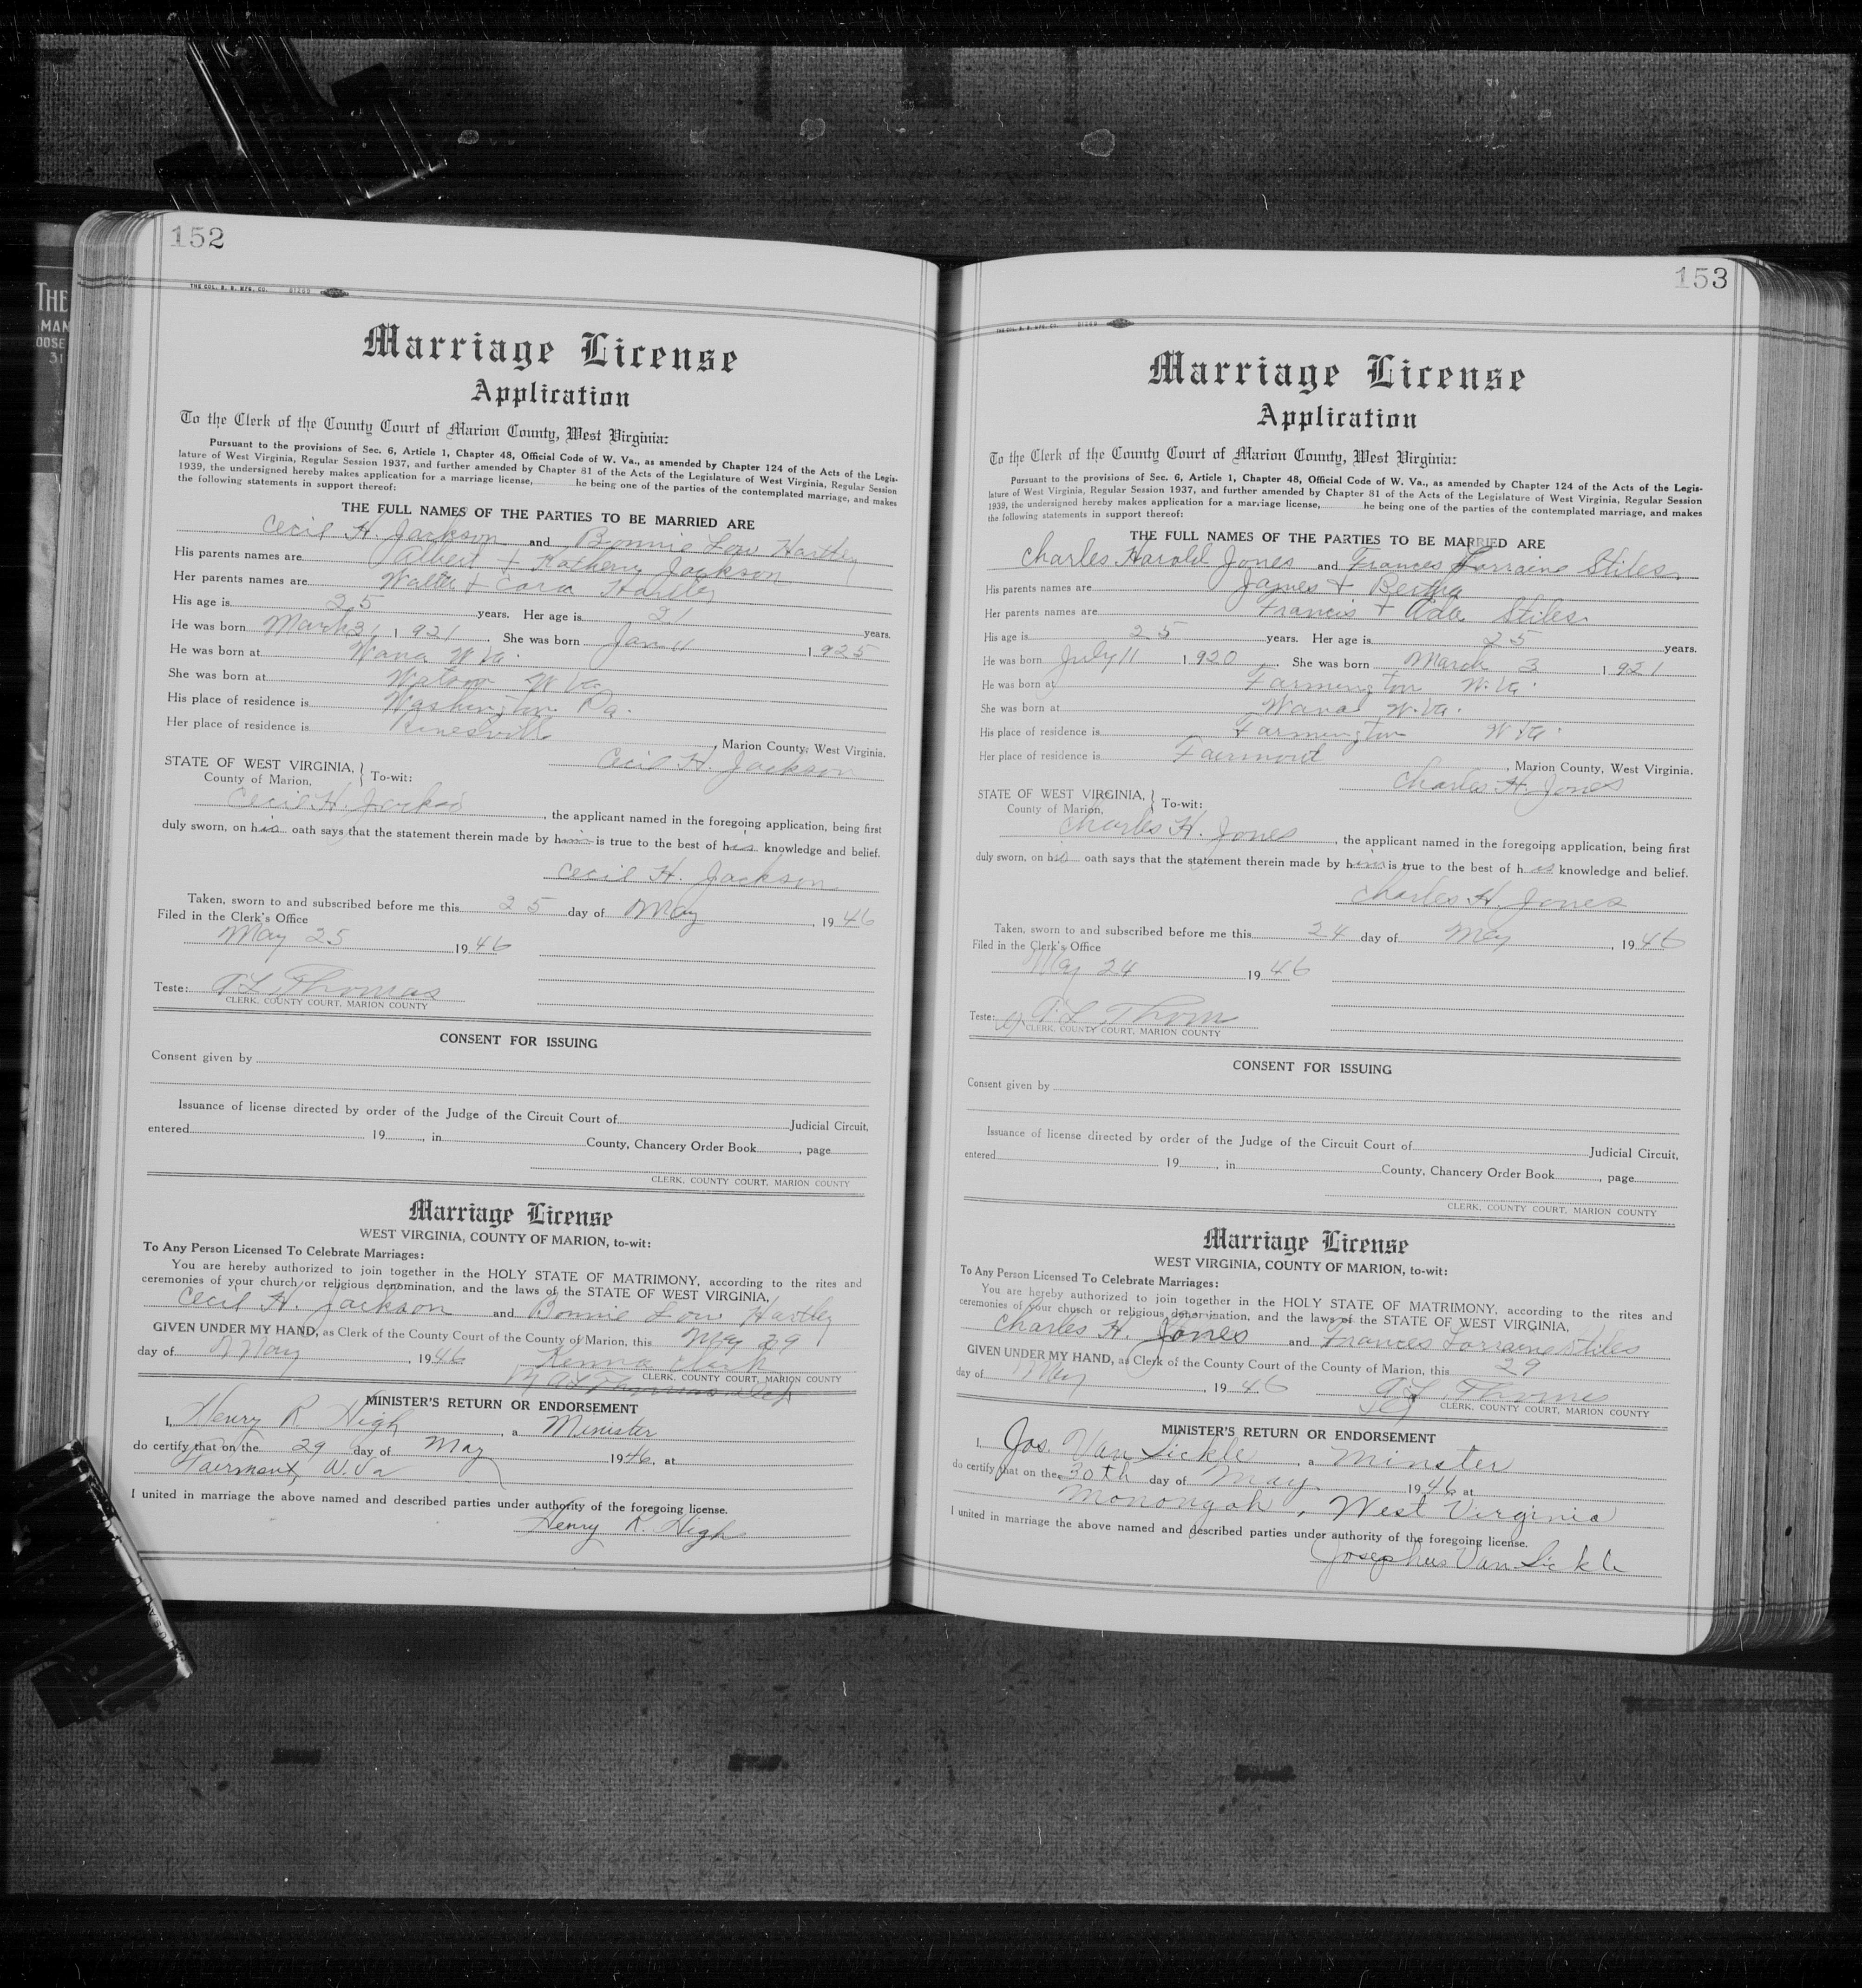 THE
MAN
OOSE
31
152
THE COL. B. B. MFG. CO. 81209
Marriage License
Application
To the Clerk of the County Court of Marion County, West Virginia:
Pursuant to the provisions of Sec. 6, Article 1, Chapter 48, Official Code of W. Va., as amended by Chapter 124 of the Acts of the Legis-
lature of West Virginia, Regular Session 1937, and further amended by Chapter 81 of the Acts of the Legislature of West Virginia, Regular Session
1939, the undersigned hereby makes application for a marriage license, he being one of the parties of the contemplated marriage, and makes
the following statements in support thereof:
THE FULL NAMES OF THE PARTIES TO BE MARRIED ARE
Cecil H. Jackson and Bonnie Low Hartley
His parents names are Albert + Katheny Jackson
Her parents names are Walter + Cora Hartley
His age is 25 years. Her age is 21 years.
He was born March 31, 1921. She was born Jan 11 1925
He was born at Wana W Va.
She was born at Watson W Va.
His place of residence is Washington Pa.
Her place of residence is Rinesville, Marion County, West Virginia.
Cecil H. Jackson
STATE OF WEST VIRGINIA,
County of Marion, } To-wit:
Cecil H. Jackson, the applicant named in the foregoing application, being first
duly sworn, on his oath says that the statement therein made by him is true to the best of his knowledge and belief.
Cecil H. Jackson
Taken, sworn to and subscribed before me this 25 day of May, 1946
Filed in the Clerk's Office
May 25 1946
Teste: A L Thomas
CLERK, COUNTY COURT, MARION COUNTY
CONSENT FOR ISSUING
Consent given by
Issuance of license directed by order of the Judge of the Circuit Court of Judicial Circuit,
entered 19, in County, Chancery Order Book, page
CLERK, COUNTY COURT, MARION COUNTY
Marriage License
WEST VIRGINIA, COUNTY OF MARION, to-wit:
To Any Person Licensed To Celebrate Marriages:
You are hereby authorized to join together in the HOLY STATE OF MATRIMONY, according to the rites and
ceremonies of your church or religious denomination, and the laws of the STATE OF WEST VIRGINIA,
Cecil H. Jackson and Bonnie Low Hartley
GIVEN UNDER MY HAND, as Clerk of the County Court of the County of Marion, this May 29
day of May, 1946 Kenna Clark
CLERK, COUNTY COURT, MARION COUNTY
By A L Thomas Dep
MINISTER'S RETURN OR ENDORSEMENT
I, Henry R. High, a Minister
do certify that on the 29 day of May 1946, at
Fairmont, W. Va
I united in marriage the above named and described parties under authority of the foregoing license.
Henry R. High
153
THE COL. B. B. MFG. CO. 81209
Marriage License
Application
To the Clerk of the County Court of Marion County, West Virginia:
Pursuant to the provisions of Sec. 6, Article 1, Chapter 48, Official Code of W. Va., as amended by Chapter 124 of the Acts of the Legis-
lature of West Virginia, Regular Session 1937, and further amended by Chapter 81 of the Acts of the Legislature of West Virginia, Regular Session
1939, the undersigned hereby makes application for a marriage license, he being one of the parties of the contemplated marriage, and makes
the following statements in support thereof:
THE FULL NAMES OF THE PARTIES TO BE MARRIED ARE
Charles Harold Jones and Frances Lorraine Stiles.
His parents names are James + Bertha
Her parents names are Francis + Ada Stiles.
His age is 25 years. Her age is 25 years.
He was born July 11 1920. She was born March 3 1921
He was born at Farmington W. Va.
She was born at Wana W. Va.
His place of residence is Farmington W Va.
Her place of residence is Fairmont, Marion County, West Virginia.
Charles H. Jones
STATE OF WEST VIRGINIA,
County of Marion, } To-wit:
Charles H. Jones, the applicant named in the foregoing application, being first
duly sworn, on his oath says that the statement therein made by him is true to the best of his knowledge and belief.
Charles H. Jones
Taken, sworn to and subscribed before me this 24 day of May, 1946
Filed in the Clerk's Office
May 24 1946
Teste: A L Thom
CLERK, COUNTY COURT, MARION COUNTY
CONSENT FOR ISSUING
Consent given by
Issuance of license directed by order of the Judge of the Circuit Court of Judicial Circuit,
entered 19, in County, Chancery Order Book, page
CLERK, COUNTY COURT, MARION COUNTY
Marriage License
WEST VIRGINIA, COUNTY OF MARION, to-wit:
To Any Person Licensed To Celebrate Marriages:
You are hereby authorized to join together in the HOLY STATE OF MATRIMONY, according to the rites and
ceremonies of your church or religious denomination, and the laws of the STATE OF WEST VIRGINIA,
Charles H. Jones and Frances Lorraine Stiles
GIVEN UNDER MY HAND, as Clerk of the County Court of the County of Marion, this 29
day of May, 1946 A L Thomas
CLERK, COUNTY COURT, MARION COUNTY
MINISTER'S RETURN OR ENDORSEMENT
I, Jos. Van Sickle, a Minster
do certify that on the 30th day of May, 1946 at
Monongah, West Virginia
I united in marriage the above named and described parties under authority of the foregoing license.
Josephus Van Sickle